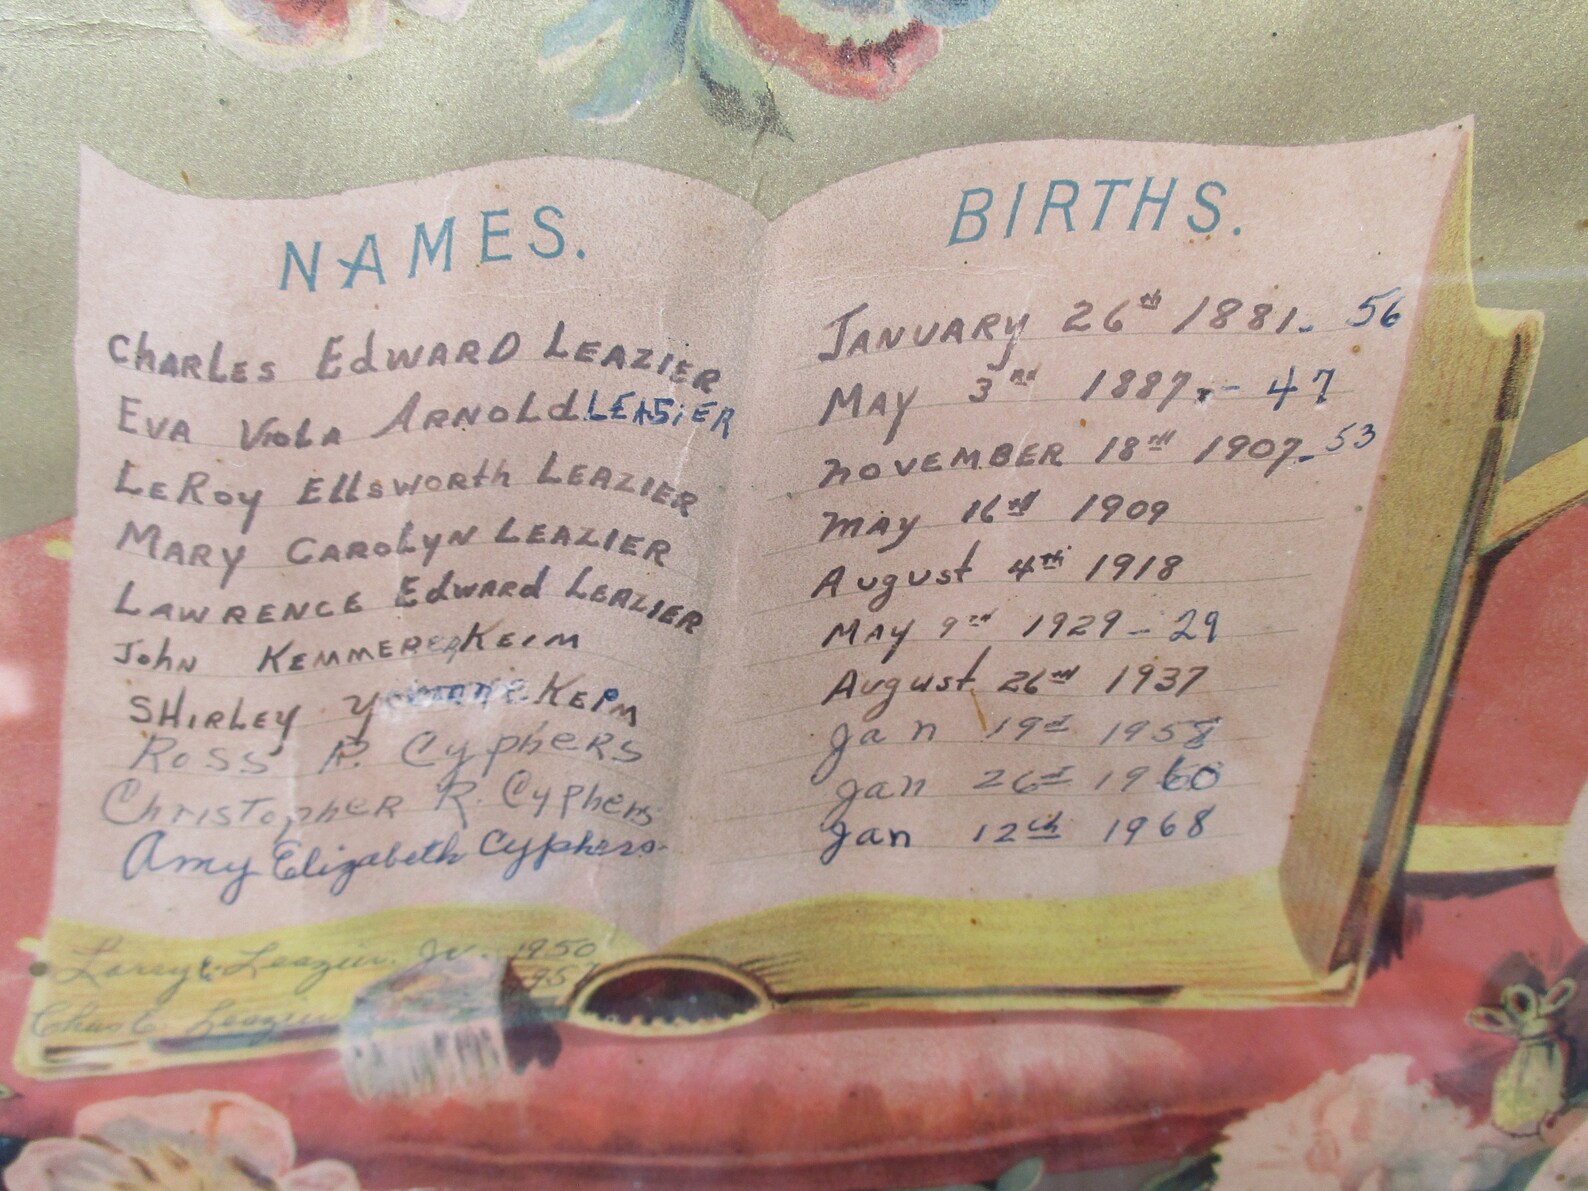 NAMES. BIRTHS.
Charles Edward Leazier January 26th 1881 - 56
Eva Viola Arnold LEASiER May 3rd 1887 - 47
LeRoy Ellsworth Leazier November 18th 1907 - 53
Mary Carolyn Leazier May 16th 1909
Lawrence Edward Leazier August 4th 1918
John Kemmerer Keim May 9th 1929 - 29
Shirley Keim August 26th 1937
Ross R. Cyphers Jan 19th 1958
Christopher R. Cyphers Jan 26th 1960
Amy Elizabeth Cyphers Jan 12th 1968
Leazier Jr. 1950
Chas E Leazier